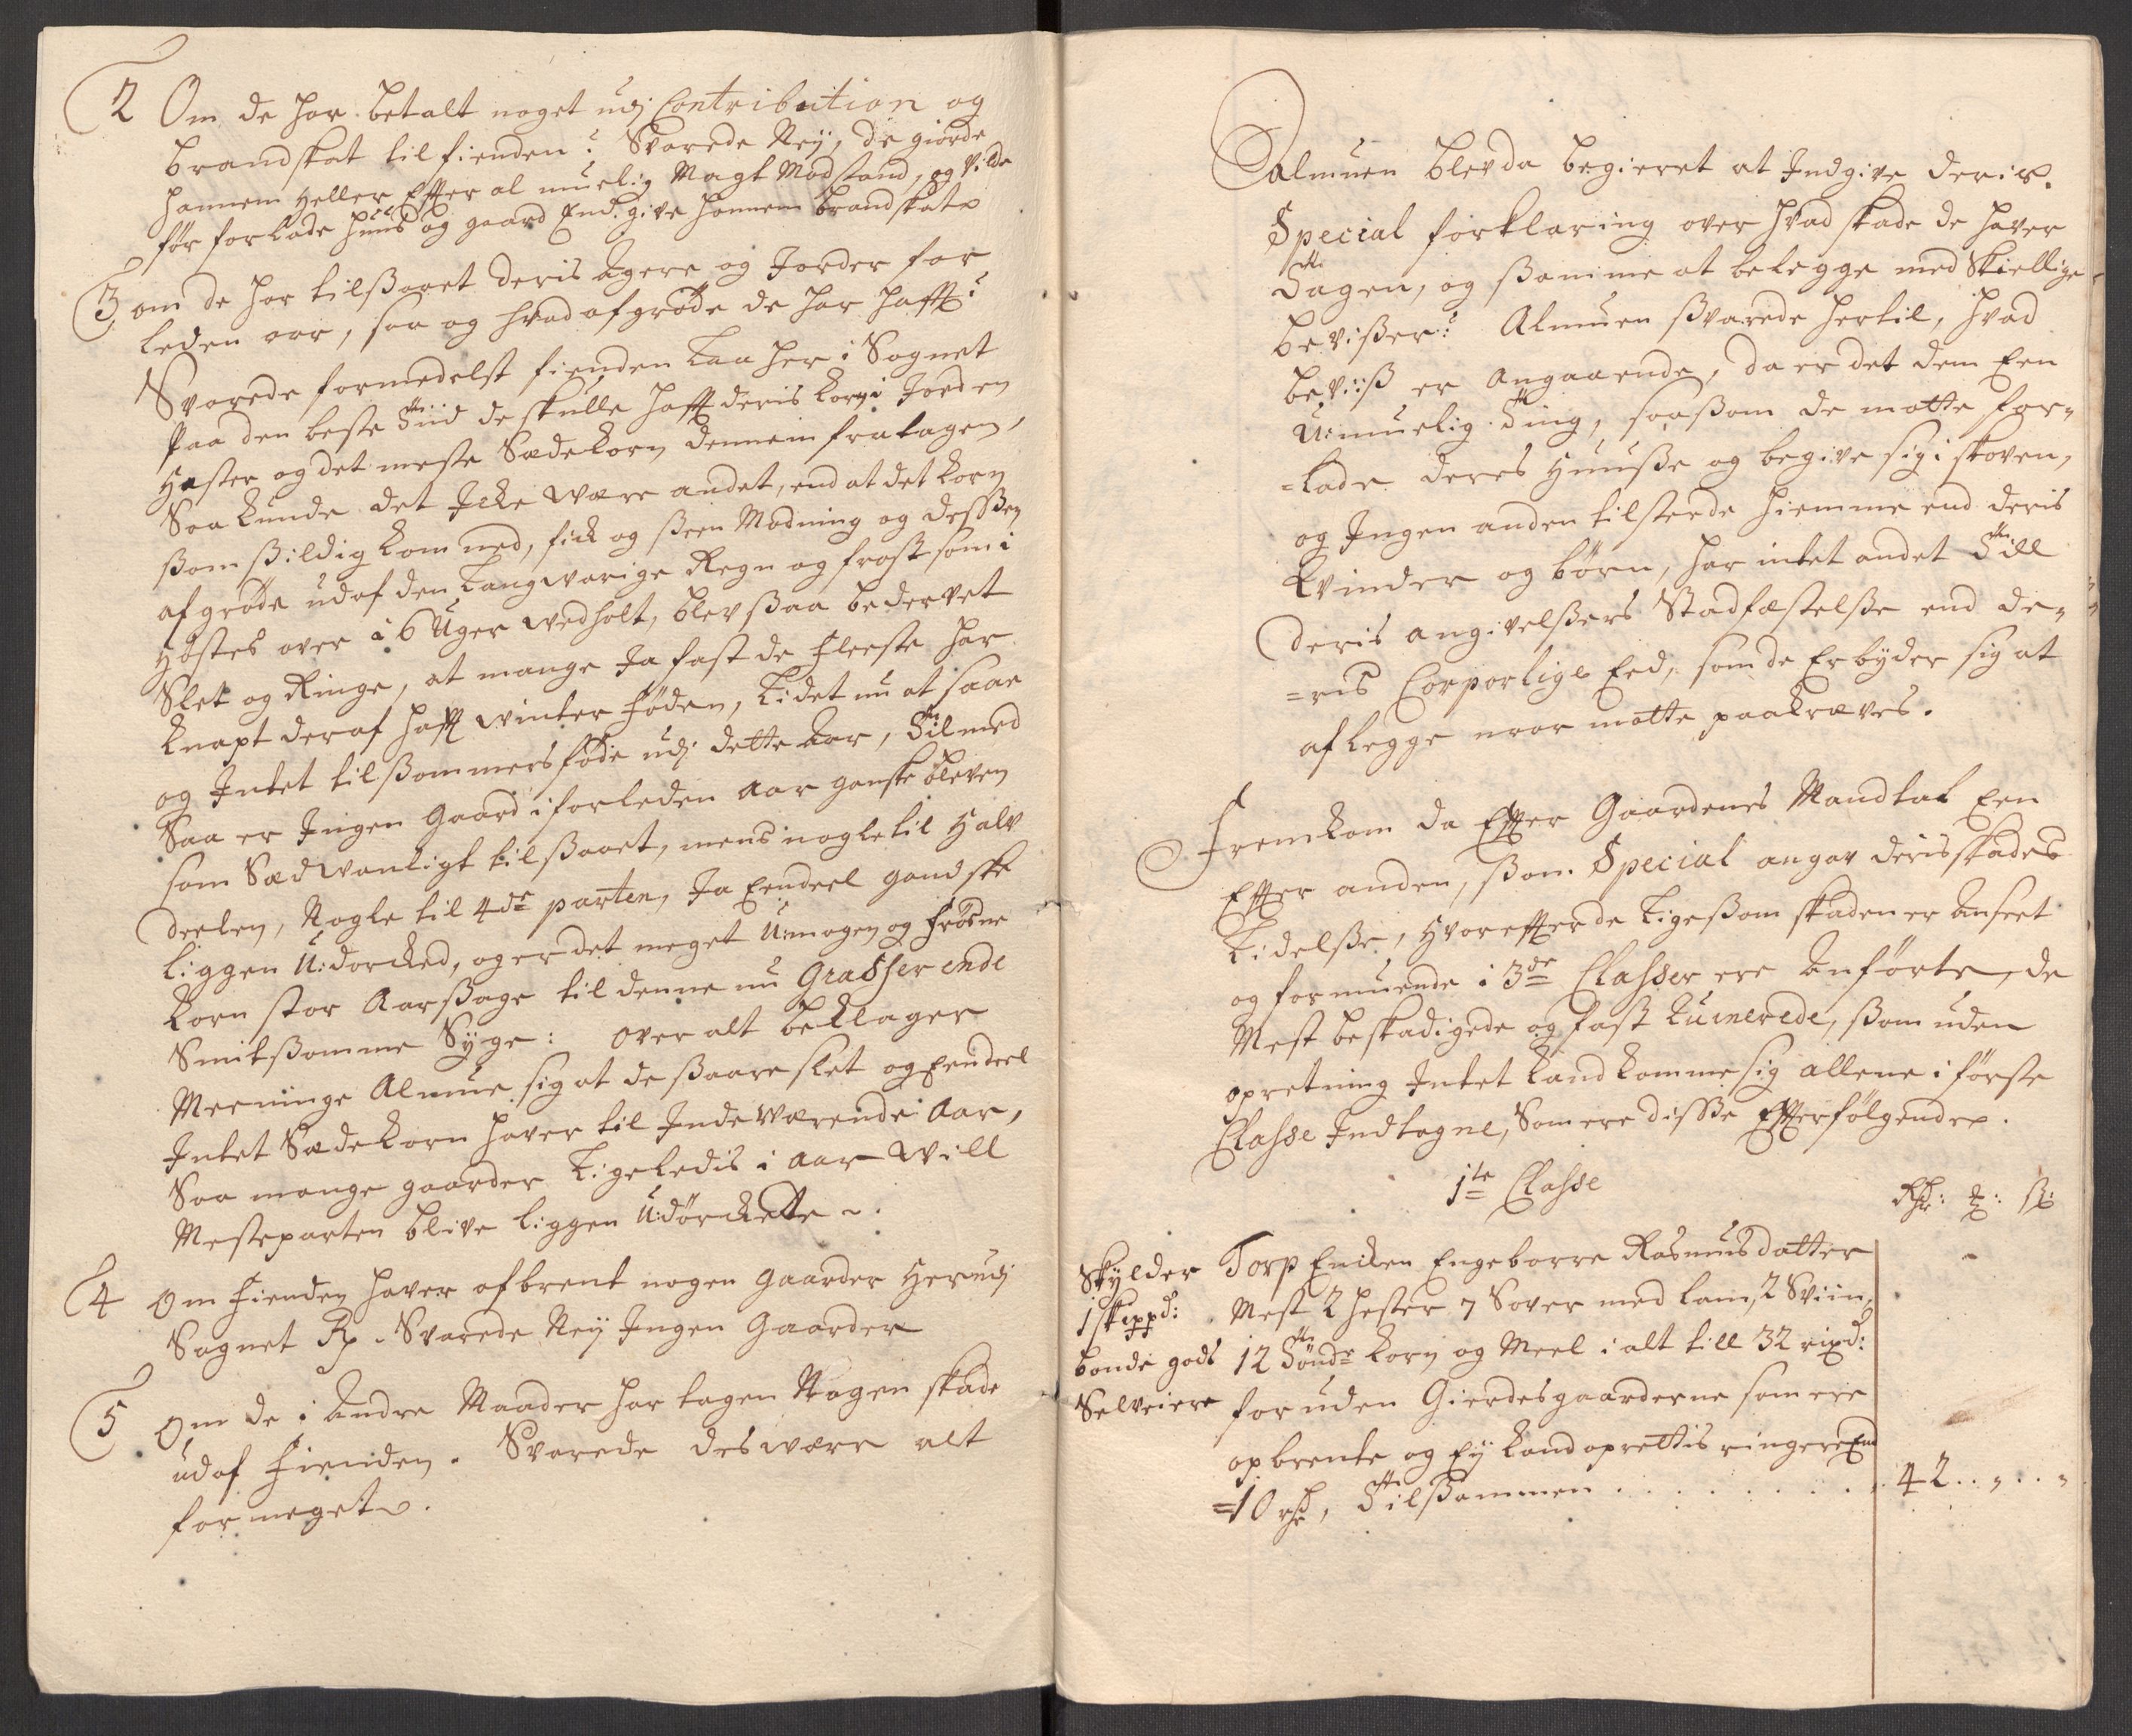 2 Om de har betalt noget udj Contribution og
brandskat til fienden? Svarede Neÿ, de giorde
hannem heller Effter al muelig Magt Modstand, og vilde
før forlade huus og gaard End give hannem brandskat
3 om de har tilsaaet deris Agere og Jorder for
leden aar, saa og hvad afgrøde de har hafft?
Svarede formedelst fienden laa her i Sognet
paa den beste Tiid de skulle hafft deris korn i Jorden
Hester og det meste Sædekorn dennem fratagen,
Saa kunde det Icke være andet, end at det korn
som sildig kom ned, fick og seen Modning og desssen
afgrøde udaf den langvarige Regn og frost som i
Høstes over i 6 Uger vedholt, blev saa bedervet
Slet og Ringe, at mange Ja fast de fleeste har
knapt deraf hafft vinter føden, lidet nu at saae
og Intet til sommersføde udj dette Aar, Til med
Saa er Ingen Gaard i forleden Aar ganske bleven
som Sædvanligt tilsaaet, mens nogle til Halv
deelen, Nogle til 4de parten, Ja Eendeel gandske
liggen U:dorcked, og er det meget U:mogen og frosne
korn stor Aarsage til denne nu Grasserende
Smitsomme Syge: over alt beklager
Meeninge Almue sig at de saare slet og Eendeel
Intet Sædekorn haver til Indeværende Aar,
Saa mange gaarder ligeledis i Aar vill
Mesteparten blive liggen U:dørckette.
4 Om Fienden haver afbrent nogen Gaarder Her udj
Sognet Rp. Svarede Neÿ Ingen Gaarder
5 Om de i Andre Maader har tagen Nogen skade
udaf Fienden. Svarede desvære alt
for meget.
Almuen blev da begieret at Indgive deris
Special forklaring over hvad skade de haver
Tagen, og samme at belegge med Skiellige
beviser: Almuen svarede hertil, hvad
beviis er Angaaende, da er det dem Een
U:muelig Ting, saasom de motte for-
=lade deres Huuse og begive sig i skoven,
og Ingen anden tilstede hiemme end deris
kvinder og børn, har intet andet Till
deris angivelsers Stadfæstelse end de-
=ris Corporlige Eed, som de Erbÿder sig at
aflegge naar motte paakræves.
Fremkom da Effter Gaardenes Mandtal Een
Effter anden, som Special angav deris skades
Lidelse, Hvoreffter de ligesom skaden er Anseet
og formuende i 3de Classer ere Anførte, de
Mest beskadigede og fast Ruinerede, som uden
opretning Intet kand komme sig allene i første
Classe Indtagne, Som ere disse Effterfølgende.
1te Classe
Rdr: #: s:
Skÿlder Torp Encken Engeborre Rasmusdatter
1 skippd: Mest 2 hester 7 Sover med lam, 2 Sviin,
bonde gods 12 Tønde korn og Meel i alt till 32 rixd:
Selveiere foruden Gierdesgaarderne som ere
opbrente og Eÿ kand oprettis ringere End
=10 rdr, Tilsammen . . . . . . . 42 . . „ . . „